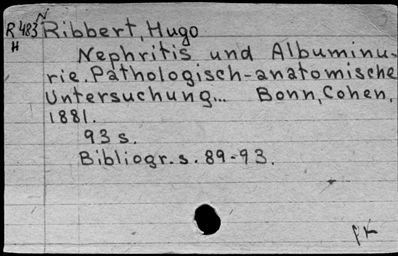 N
R 483 Ribbert, Hugo
H
Nephritis und Albuminu-
rie. Pathologisch-anatomische
Untersuchung... Bonn, Cohen,
1881.
93 s.
Bibliogr. s. 89-93.